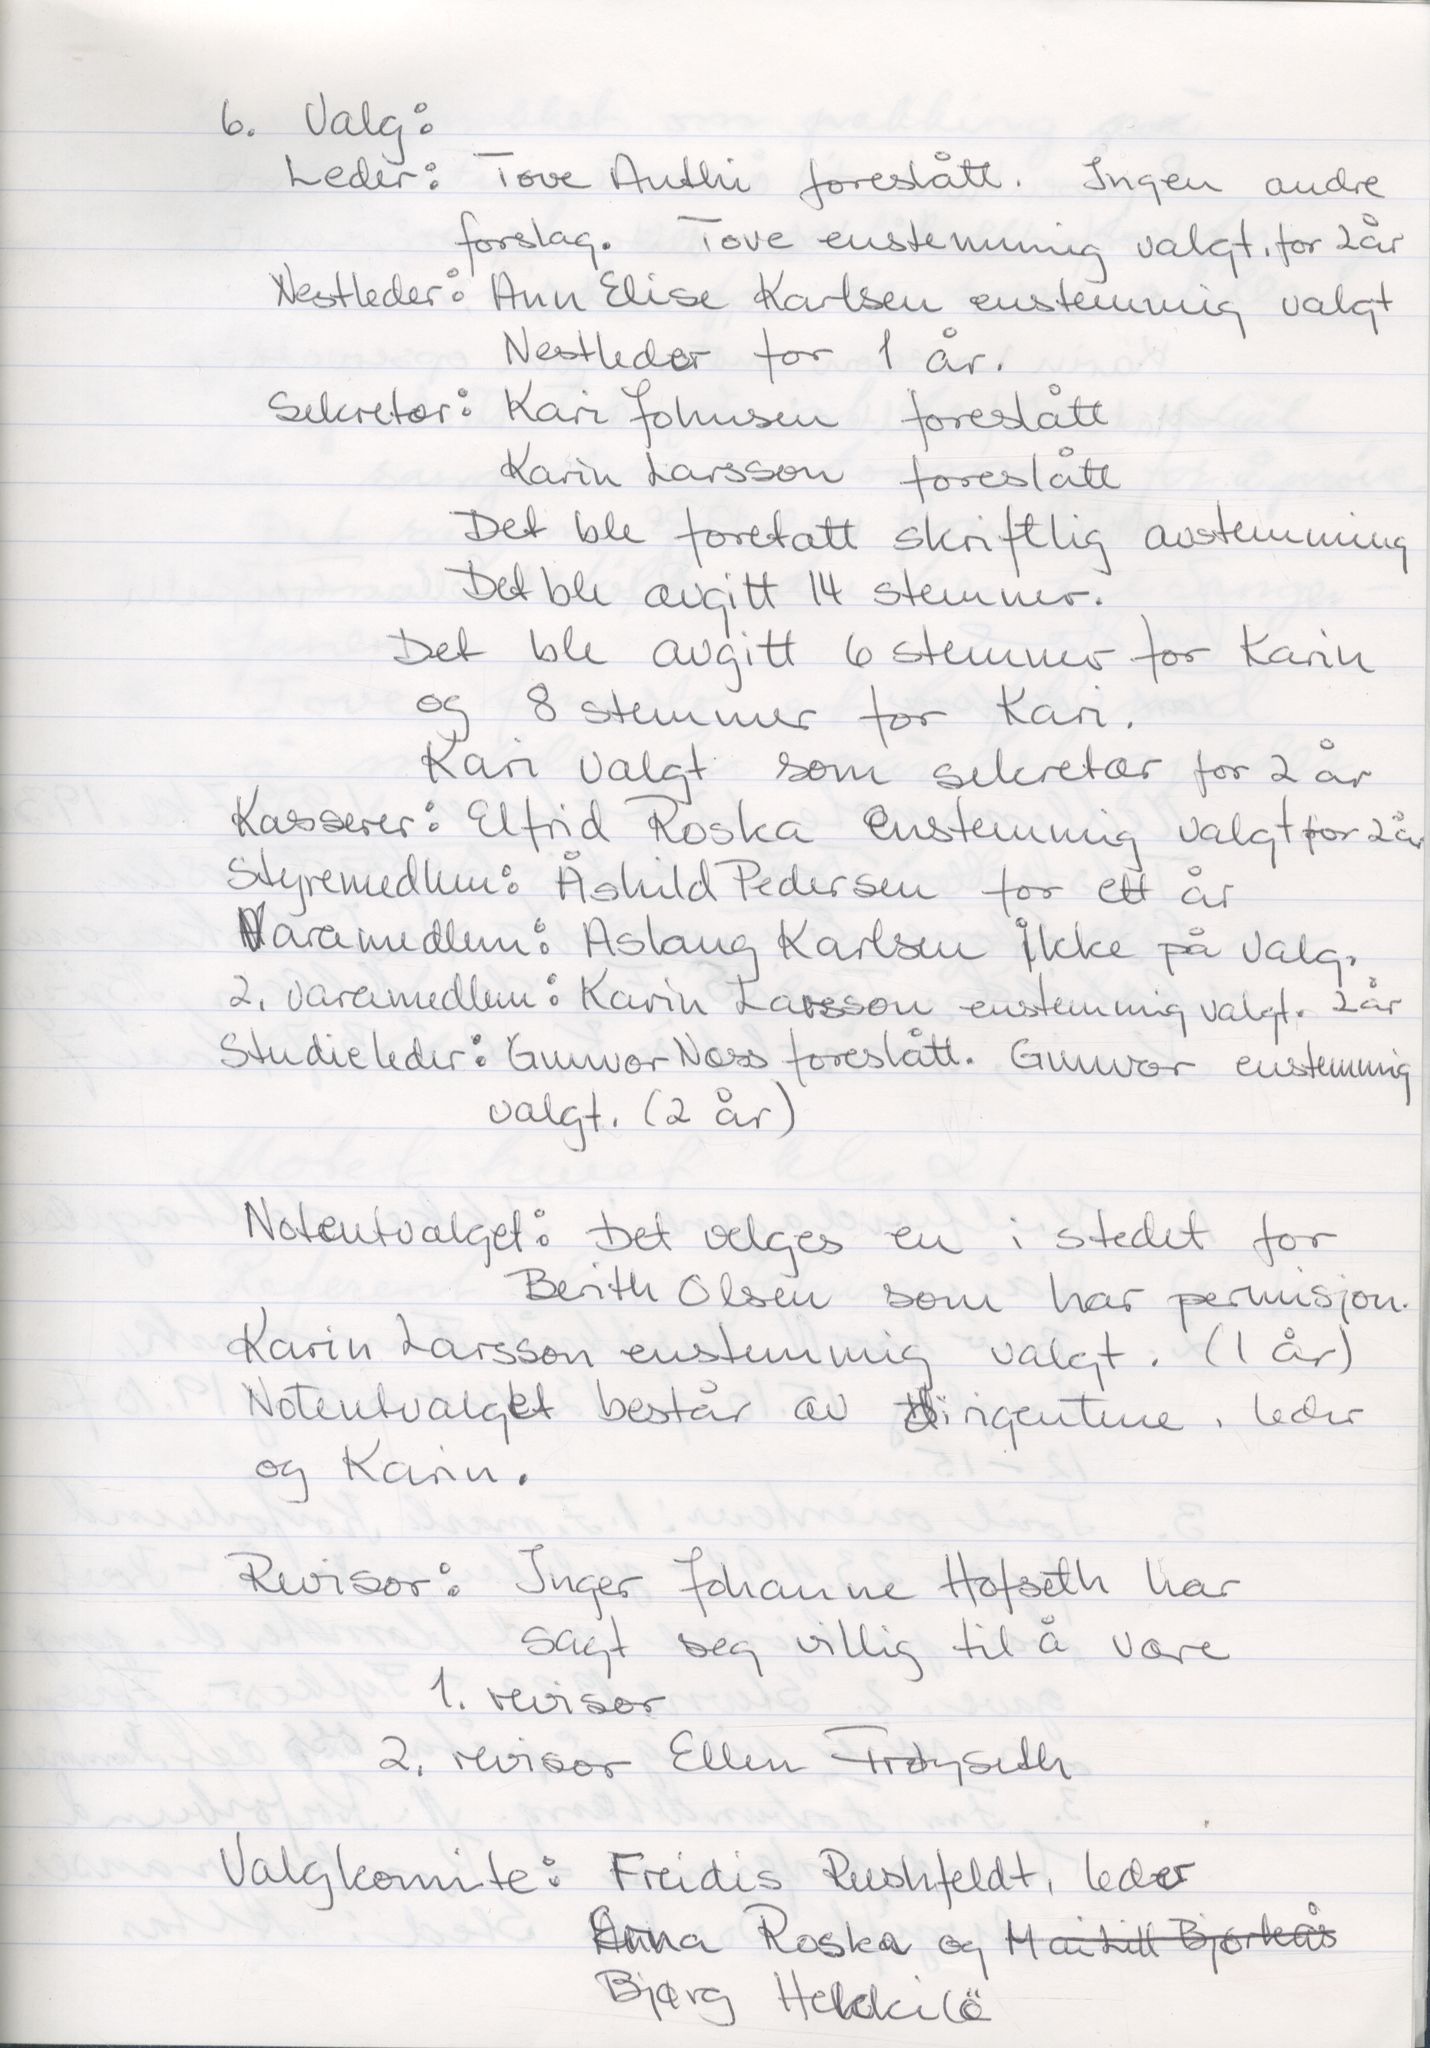 6. Valg:
Leder: Tove Anthi foreslått. Ingen andre
forslag. Tove enstemmig valgt. for 2 år
Nestleder: Ann Elise Karlsen enstemmig valgt
Nestleder for 1 år.
Sekretær: Kari Johnsen foreslått
Karin Larsson foreslått
Det ble foretatt skriftlig avstemming
Det ble avgitt 14 stemmer.
Det ble avgitt 6 stemmer for Karin
og 8 stemmer for Kari.
Kari valgt som sekretær for 2 år
Kasserer: Elfrid Roska enstemmig valgt for 2 år
Styremedlem: Åshild Pedersen for ett år
Varamedlem: Aslaug Karlsen ikke på valg.
2. varamedlem: Karin Larsson enstemmig valgt. 2 år
Studieleder: Gunvor Næss foreslått. Gunvor enstemmig
valgt. (2 år)
Noteutvalget: Det velges en i stedet for
Berith Olsen som har permisjon.
Karin Larsson enstemmig valgt. (1 år)
Noteutvalget består av dirigentene, leder
og Karin.
Revisor: Inger Johanne Hofseth har
sagt seg villig til å være
1. revisor
2. revisor Ellen Frøyseth
Valgkomite: Freidis Rushfeldt, leder
Anna Roska og Mai Litt Bjørkås
Bjørg Heikkilä